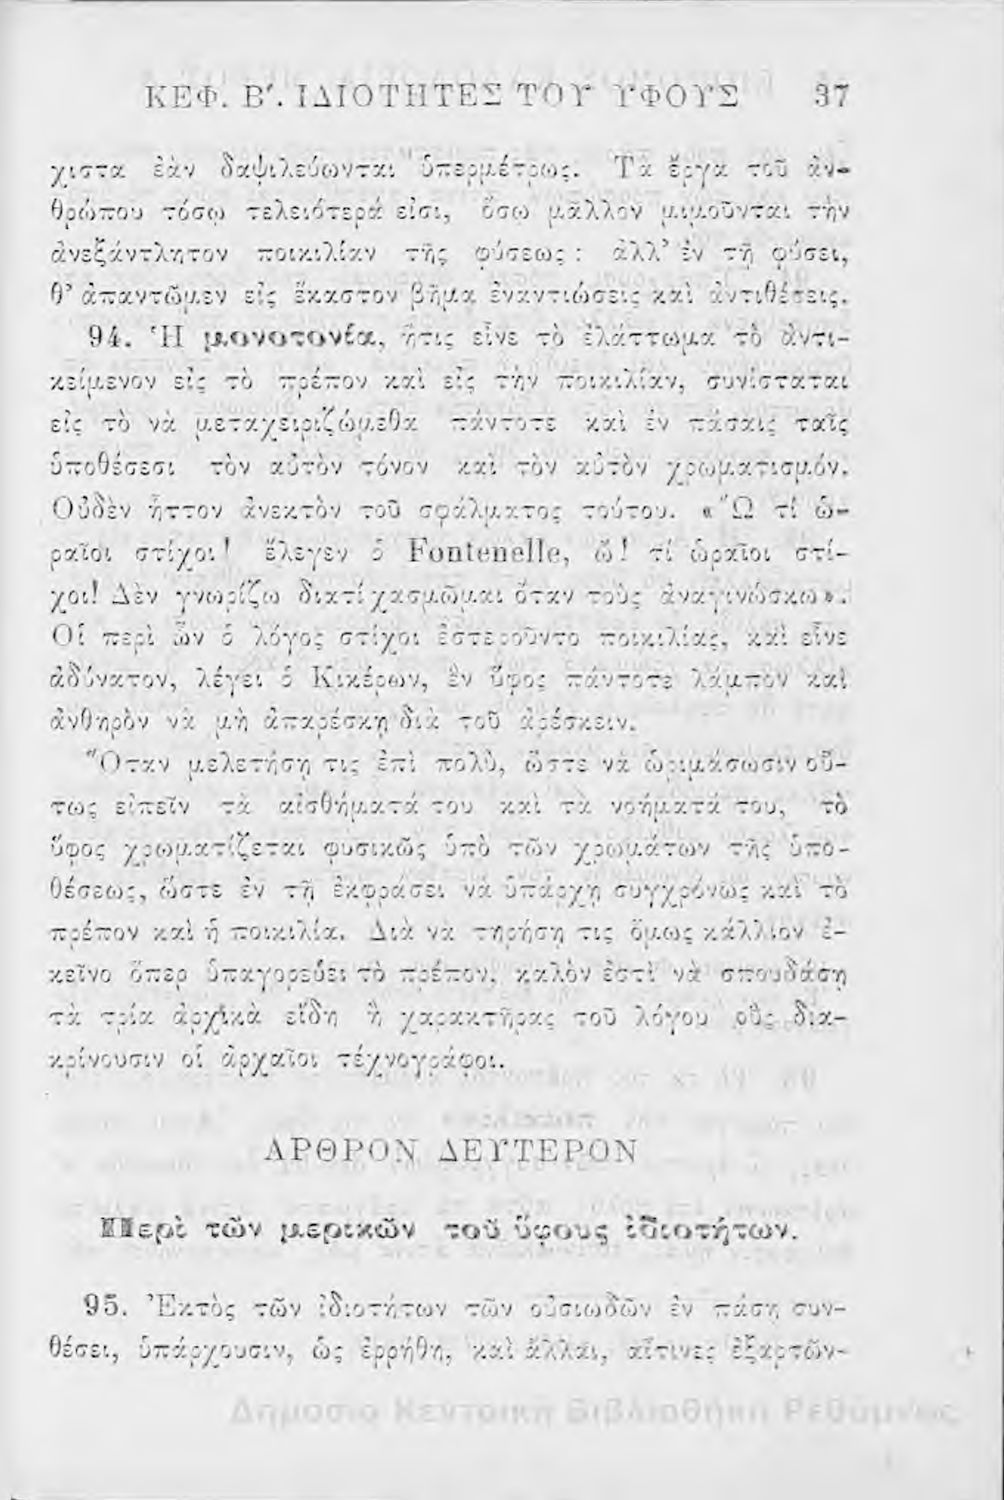 ΚΕΦ. Β'. ΙΔΙΟΤΗΤΕΣ ΤΟΥ ΥΦΟΥΣ 37
χιστα ἐὰν δαψιλεύωνται ὑπερμέτρως. Τὰ ἔργα τοῦ ἀν-
θρώπου τόσῳ τελειότερά εἰσι, ὅσῳ μᾶλλον μιμοῦνται τὴν
ἀνεξάντλητον ποικιλίαν τῆς φύσεως : ἀλλ' ἐν τῇ φύσει,
θ' ἀπαντῶμεν εἰς ἕκαστον βῆμα ἐναντιώσεις καὶ ἀντιθέσεις.
94. Ἡ μονοτονία, ἥτις εἶνε τὸ ἐλάττωμα τὸ ἀντι-
κείμενον εἰς τὸ πρέπον καὶ εἰς τὴν ποικιλίαν, συνίσταται
εἰς τὸ νὰ μεταχειριζώμεθα πάντοτε καὶ ἐν πάσαις ταῖς
ὑποθέσεσι τὸν αὐτὸν τόνον καὶ τὸν αὐτὸν χρωματισμόν.
Οὐδὲν ἧττον ἀνεκτὸν τοῦ σφάλματος τούτου. « Ὢ τί ὡ-
ραῖοι στίχοι! ἔλεγεν ὁ Fontenelle, ὤ! τί ὡραῖοι στί-
χοι! Δὲν γνωρίζω διατί χασμῶμαι ὅταν τοὺς ἀναγινώσκω».
Οἱ περὶ ὧν ὁ λόγος στίχοι ἐστεροῦντο ποικιλίας, καὶ εἶνε
ἀδύνατον, λέγει ὁ Κικέρων, ἓν ὕφος πάντοτε λάμπον καὶ
ἀνθηρὸν νὰ μὴ ἀπαρέσκῃ διὰ τοῦ ἀρέσκειν.
Ὅταν μελετήσῃ τις ἐπὶ πολὺ, ὥστε νὰ ὡριμάσωσιν οὕ-
τως εἰπεῖν τὰ αἰσθήματά του καὶ τὰ νοήματά του, τὸ
ὕφος χρωματίζεται φυσικῶς ὑπὸ τῶν χρωμάτων τῆς ὑπο-
θέσεως, ὥστε ἐν τῇ ἐκφράσει νὰ ὑπάρχῃ συγχρόνως καὶ τὸ
πρέπον καὶ ἡ ποικιλία. Διὰ νὰ τηρήσῃ τις ὅμως κάλλιον ἐ-
κεῖνο ὅπερ ὑπαγορεύει τὸ πρέπον, καλὸν ἐστὶ νὰ σπουδάσῃ
τὰ τρία ἀρχικὰ εἴδη ἢ χαρακτῆρας τοῦ λόγου οὓς δια-
κρίνουσιν οἱ ἀρχαῖοι τέχνογράφοι.
ΑΡΘΡΟΝ ΔΕΥΤΕΡΟΝ
Περὶ τῶν μερικῶν τοῦ ὕφους ἰδιοτήτων.
95. Ἐκτὸς τῶν ἰδιοτήτων τῶν οὐσιωδῶν ἐν πάσῃ συν-
θέσει, ὑπάρχουσιν, ὡς ἐρρήθη, καὶ ἄλλαι, αἵτινες ἐξαρτῶν-
Δημόσια Κεντρική Βιβλιοθήκη Ρεθύμνης